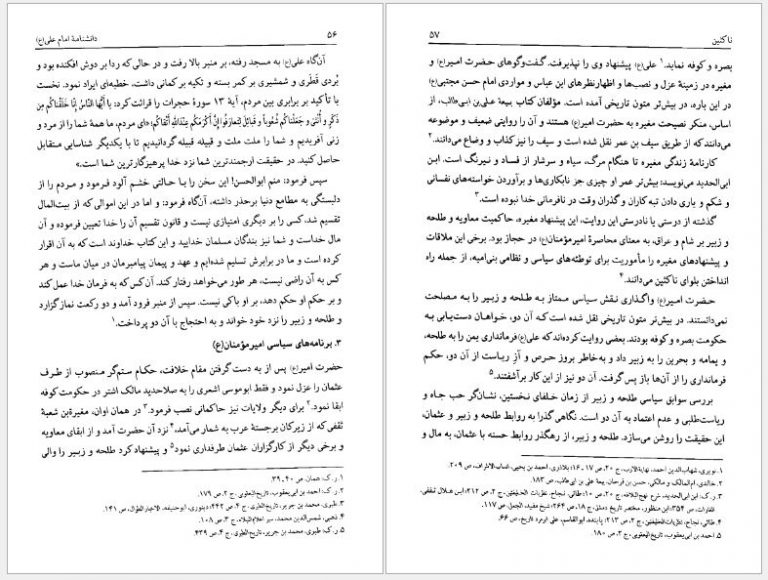 ۵۶
دانشنامهٔ امام علی(ع)
آن‌گاه علی(ع) به مسجد رفته، بر منبر بالا رفت و در حالی‌که ردا بر دوش افکنده بود و
بُردی قَطَری و شمشیری بر کمر بسته و تکیه بر کمانی داشت، خطبه‌ای ایراد نمود. نخست
با تأکید بر برابری بین مردم، آیهٔ ۱۳ سورهٔ حجرات را قرائت کرد: یا أَیُّهَا النَّاسُ إِنَّا خَلَقْنَاکُم مِن
ذَکَرٍ وَ أُنثَی وَ جَعَلْنَاکُمْ شُعُوباً وَ قَبَائِلَ لِتَعَارَفُوا إِنَّ أَکْرَمَکُمْ عِندَاللهِ أَتْقَاکُمْ؛ «ای مردم، ما همهٔ شما را از مرد و
زنی آفریدیم و شما را ملت ملت و قبیله قبیله گردانیدیم تا با یکدیگر شناسایی متقابل
حاصل کنید. در حقیقت ارجمندترین شما نزد خدا پرهیزگارترین شما است.»
سپس فرمود: منم ابوالحسن! این سخن را با حالتی خشم آلود فرمود و مردم را از
دلبستگی به مطامع دنیا برحذر داشته، آن‌گاه فرمود: و اما در این اموالی که از بیت‌المال
تقسیم شد، کسی را بر دیگری امتیازی نیست و قانون تقسیم آن را خدا تعیین فرموده و آن
مال خداست و شما نیز بندگان مسلمان خدایید و این کتاب خداوند است که به آن اقرار
کرده است و ما در برابرش تسلیم شده‌ایم و عهد و پیمان پیامبرمان در میان ماست و هر
کس به آن راضی نیست، هر طور می‌خواهد رفتار کند. آن کس که به فرمان خدا عمل کند
و بر حکم او حکم دهد، بر او باکی نیست. پس از منبر فرود آمد و دو رکعت نماز گزارد
و طلحه و زبیر را نزد خود خواند و به احتجاج با آن دو پرداخت.۱
۳. برنامه‌های سیاسی امیرمؤمنان(ع)
حضرت امیر(ع) پس از به دست گرفتن مقام خلافت، حکام ستم‌گر منصوب از طرف
عثمان را عزل نمود و فقط ابوموسی اشعری را به صلاحدید مالک اشتر در حکومت کوفه
ابقا نمود.۲ برای دیگر ولایات نیز حاکمانی نصب فرمود.۳ در همان اوان، مغیرةبن شعبهٔ
ثقفی که از زیرکان برجستهٔ عرب به شمار می‌آمد،۴ نزد آن حضرت آمد و از ابقای معاویه
و برخی دیگر از کارگزاران عثمان طرفداری نمود۵ و پیشنهاد کرد طلحه و زبیر را والی
۱. ر.ک: همان، ص ۴۰ ـ ۳۹.
۲. ر.ک: احمد بن ابی‌یعقوب، تاریخ‌الیعقوبی، ج ۲، ص ۱۷۹.
۳. طبری، محمد بن جریر، تاریخ‌الطبری، ج ۴، ص ۴۴۲؛ دینوری، ابوحنیفه، الاخبارالطوال، ص ۱۴۱.
۴. ذهبی، شمس‌الدین محمد، سیر اعلام‌النبلاء، ج ۳، ص ۱۰۸.
۵. ر.ک: طبری، محمد بن جریر، تاریخ‌الطبری، ج ۴، ص ۴۳۹.
۵۷
ناکثین
بصره و کوفه نماید.۱ علی(ع) پیشنهاد وی را نپذیرفت. گفت‌وگوهای حضرت امیر(ع) و
مغیره در زمینهٔ عزل و نصب‌ها و اظهارنظرهای ابن عباس و مواردی امام حسن مجتبی(ع)
در این باره، در بیش‌تر متون تاریخی آمده است. مؤلفان کتاب بیعة علی‌بن ابی‌طالب، از
اساس، منکر نصیحت مغیره به حضرت امیر(ع) هستند و آن را روایتی ضعیف و موضوعه
می‌دانند که از طریق سیف بن عمر نقل شده است و سیف را نیز کذاب و وضاع می‌دانند.۲
کارنامهٔ زندگی مغیره تا هنگام مرگ، سیاه و سرشار از فساد و نیرنگ است. ابن
ابی‌الحدید می‌نویسد: بیش‌تر عمر او چیزی جز نابکاری‌ها و برآوردن خواسته‌های نفسانی
و شکم و یاری دادن تبه کاران و گذران وقت در نافرمانی خدا نبوده است.۳
گذشته از درستی یا نادرستی این روایت، این پیشنهاد مغیره، حاکمیت معاویه و طلحه
و زبیر بر شام و عراق، به معنای محاصرهٔ امیرمؤمنان(ع) در حجاز بود. برخی این ملاقات
و پیشنهادهای مغیره را مأموریت برای توطئه‌های سیاسی و نظامی بنی‌امیه، از جمله راه
انداختن بلوای ناکثین می‌دانند.۴
حضرت امیر(ع) واگذاری نقش سیاسی ممتاز به طلحه و زبیر را به مصلحت
نمی‌دانستند. در بیش‌تر متون تاریخی نقل شده است که آن دو، خواهان دست‌یابی به
حکومت بصره و کوفه بودند. بعضی روایت کرده‌اند که علی(ع) فرمانداری یمن را به طلحه،
و یمامه و بحرین را به زبیر داد و به‌خاطر بروز حرص و آزِ ریاست از آن دو، حکم
فرمانداری را از آن‌ها باز پس گرفت. آن دو نیز از این کار برآشفتند.۵
بررسی سوابق سیاسی طلحه و زبیر از زمان خلفای نخستین، نشان‌گر حب جاه و
ریاست‌طلبی و عدم اعتماد به آن دو است. نگاهی گذرا به روابط طلحه و زبیر و عثمان،
این حقیقت را روشن می‌سازد. طلحه و زبیر، از رهگذر روابط حسنه با عثمان، به مال و
۱. نویری، شهاب‌الدین احمد، نهایةالارب، ج ۲۰، ص ۱۷ ـ ۱۶؛ بلاذری، احمد بن یحیی، انساب‌الاشراف، ص ۲۰۹.
۲. خالدی، ام‌المالک و مالکی، حسن بن فرحان، بیعة علی بن ابی‌طالب، ص ۱۸۳.
۳. ر.ک: ابن ابی‌الحدید، شرح نهج‌البلاغه، ج ۲۰، ص ۱۰؛ طائی، نجاح، نظریات الخلیفتین، ج ۲، ص ۲۱۲؛ ابن هلال ثقفی،
الغارات، ص ۳۵۴؛ ابن منظور، مختصر تاریخ دمشق، ج ۱۸، ص ۲۶۴؛ شیخ مفید، الجمل، ص ۱۱۷.
۴. طائی، نجاح، نظریات‌الخلیفتین، ج ۲، ص ۲۱۳؛ پاینده، ابوالقاسم، علی ابرمرد تاریخ، ص ۶۶.
۵. احمد بن ابی‌یعقوب، تاریخ‌الیعقوبی، ج ۲، ص ۱۸۰